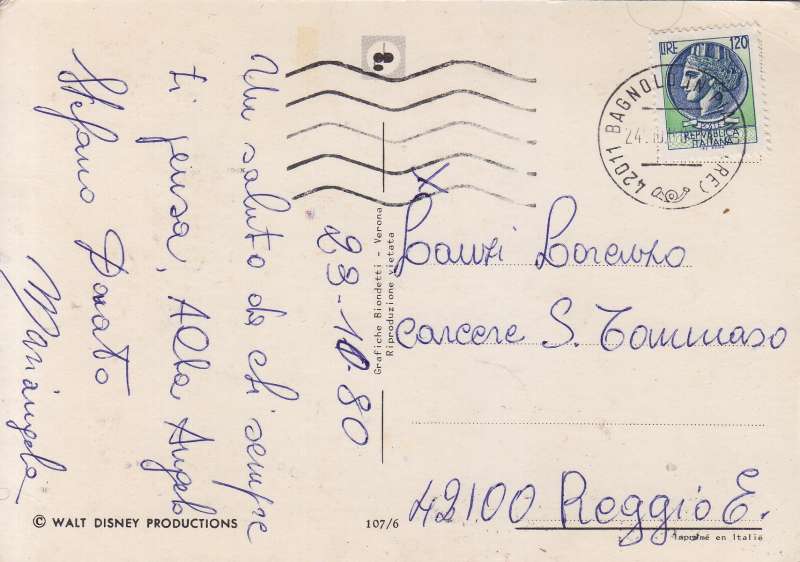 Un saluto da chi sempre
ti pensa, Alba Angelo
Stefano Donato
Mariangela
23-10-80
Grafiche Biondetti - Verona
Riproduzione vietata
LIRE 120
POSTE
REPVBBLICA
ITALIANA
42011 BAGNOLO IN P (RE)
24.10
Lanzi Lorenzo
carcere S. Tommaso
42100 Reggio E.
© WALT DISNEY PRODUCTIONS
107/6
Imprimé en Italie